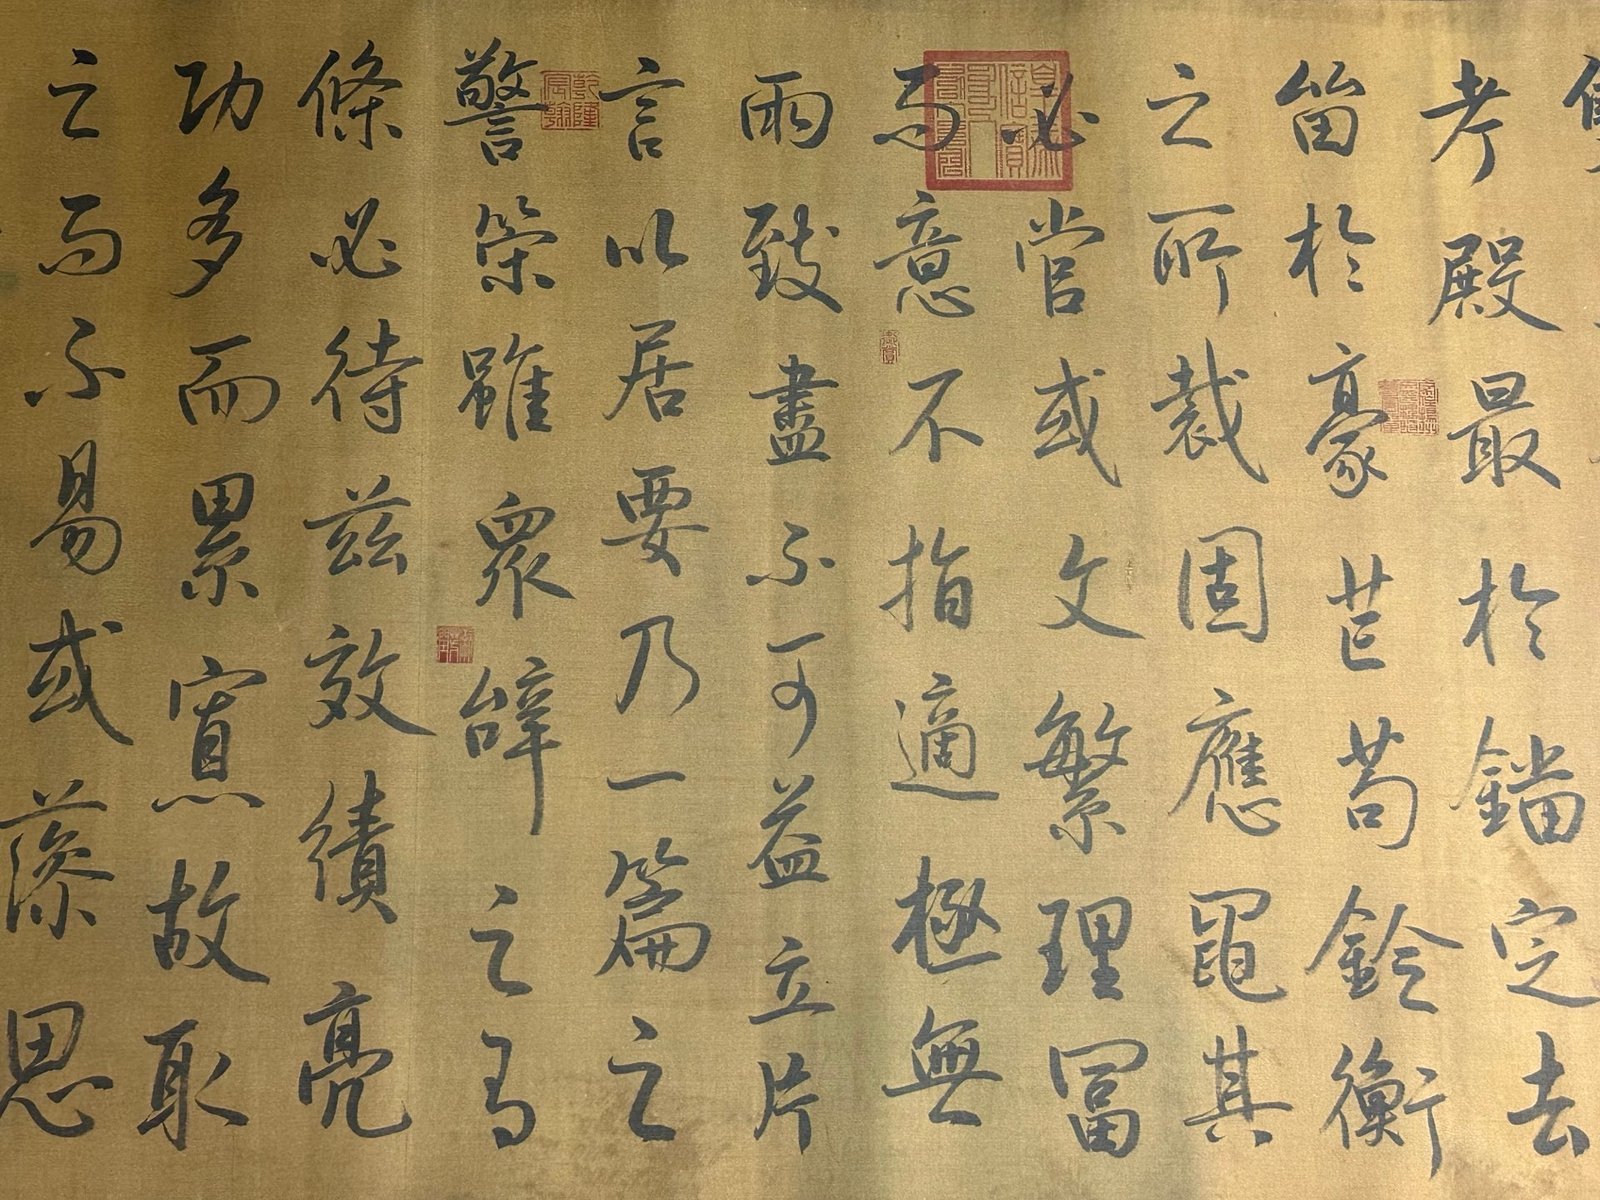 考殿最於錙定去
留於豪芒苟銓衡
之所裁固應繩其
必當或文繁理冨
而意不指適極無
兩致盡不可益立片
言以居要乃一篇之
警策雖眾辭之有
條必待茲效績亮
功多而累寡故取
之而不易或藻思